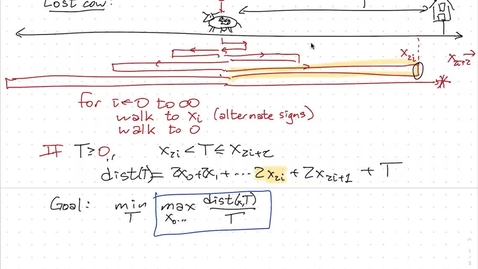 Lost cow:
x_{2i}
x_{2i+2}
for i←0 to ∞
walk to x_i (alternate signs)
walk to 0
If T≥0, x_{2i} < T ≤ x_{2i+2}
dist(T) = 2x_0+2x_1+ ... 2x_{2i} + 2x_{2i+1} + T
Goal: min_T max_{x_0...} dist(x,T)/T